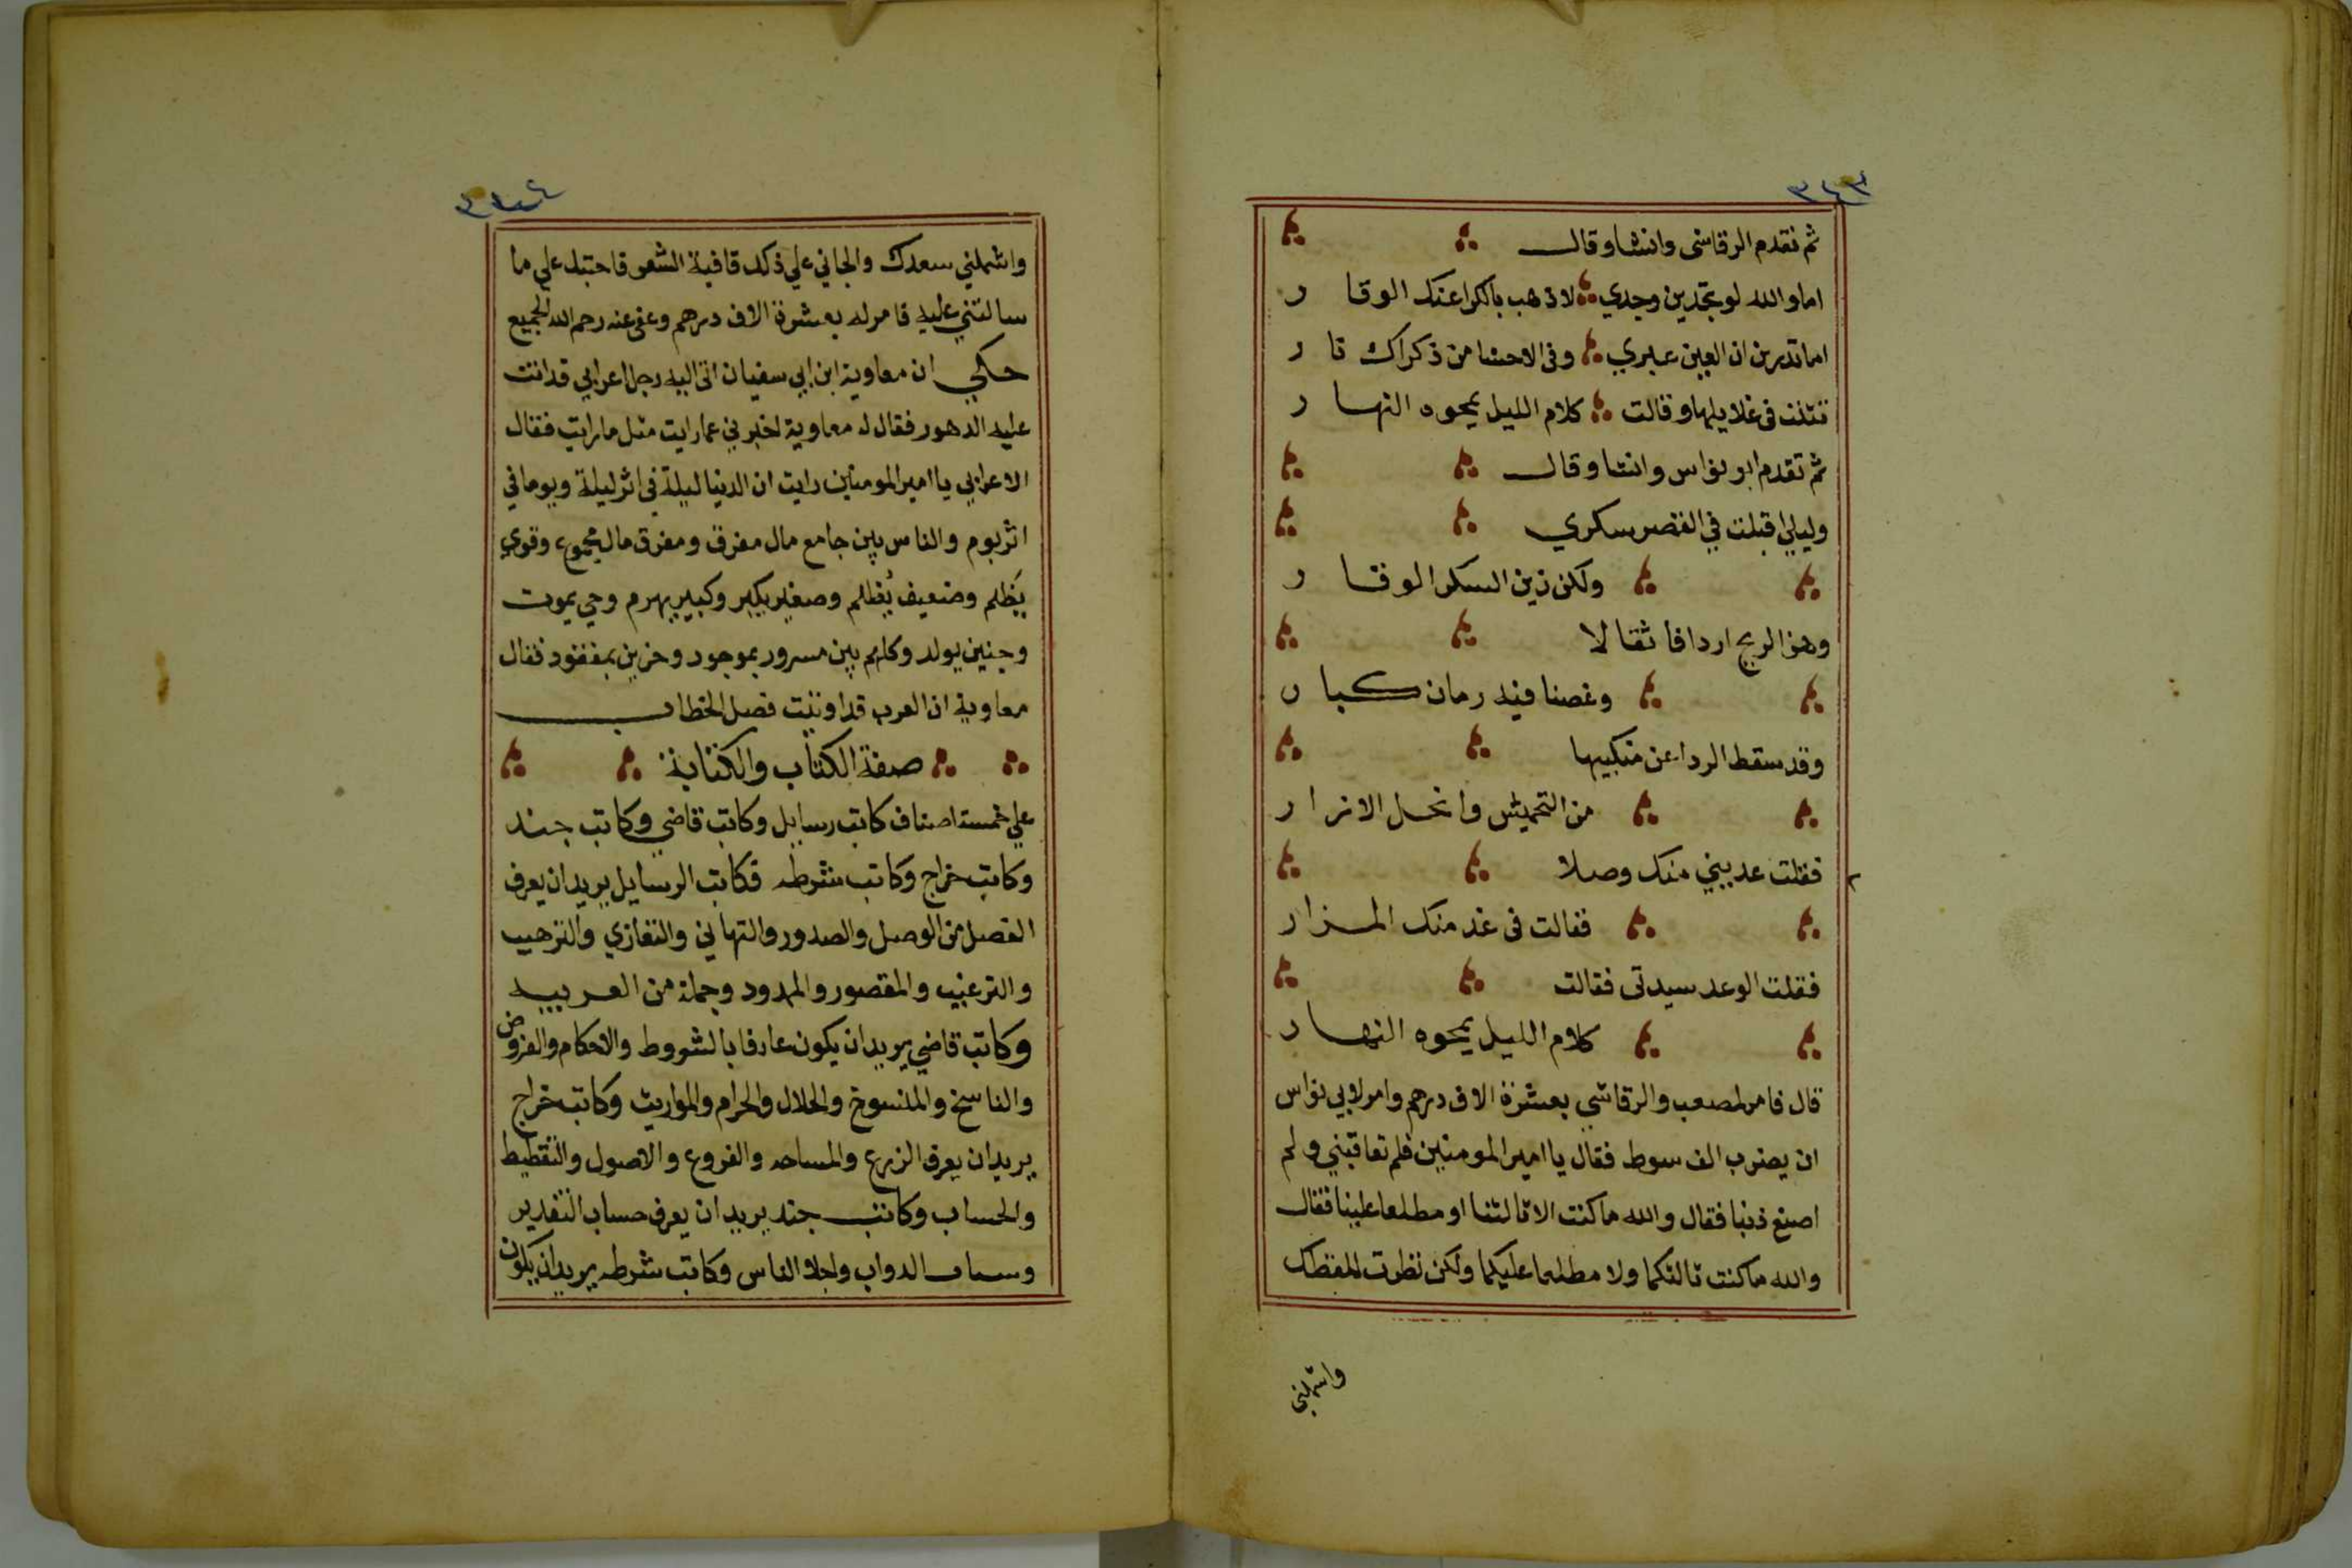 ٣٤٣
ثم تقدم الرقاشى وانشا وقال
اما والله لو تجدين وجدي لاذهب بالكرا عنك الوقار
اما تدرين ان العين عبري وفى الاحشا من ذكراك نار
فثنت فى غلايلها وقالت كلام الليل يمحوه النهار
ثم تقدم ابو نواس وانشا وقال
وليلي اقبلت في القصر سكري
ولكن زين السكر الوقار
وهز الريح اردافا ثقالا
وغصنا فيه رمان كبار
وقد سقط الردا عن منكبيها
من التخميش وانحل الازار
فقلت عديني منك وصلا
فقالت فى غد منك المزار
فقلت الوعد سيدتى فقالت
كلام الليل يمحوه النهار
قال فامر لمصعب والرقاشي بعشرة الاف درهم وامر لابي نواس
ان يضرب الف سوط فقال يا امير المومنين فلم تعاقبني ولم
اصنع ذنبا فقال والله ما كنت الا ثالثنا او مطلعا علينا فقال
والله ما كنت ثالثكما ولا مطلعا عليكما ولكن نظرت للفظك
واشملني
واشملني سعدك والجاني علي ذلك قافية الشعر فاحتبل علي ما
سالتني عليه فامر له بعشرة الاف درهم وعفى عنه رحم الله الجميع
حكي ان معاوية ابن ابي سفيان اتى اليه رجل اعرابي قد اتت
عليه الدهور فقال له معاوية اخبرني عما رايت مثل ما رايت فقال
الاعرابي يا امير المومنين رايت ان الدنيا ليلة في اثر ليلة ويوما في
اثر يوم والناس بين جامع مال مفرق ومفرق مال مجموع وقوي
يَظلم وضعيف يُظلم وصغير يكبر وكبير يهرم وحي يموت
وجنين يولد وكلهم بين مسرور بموجود وحزين بمفقود فقال
معاوية ان العرب قد اوتيت فصل الخطاب
صفة الكتاب والكتابة
علي خمسة اصناف كاتب رسايل وكاتب قاضي وكاتب جند
وكاتب خراج وكاتب شرطه فكاتب الرسايل يريد ان يعرف
الفصل من الوصل والصدور والتهاني والتعازي والترهيب
والترغيب والمقصور والممدود وجملة من العربيه
وكاتب قاضي يريد ان يكون عارفا بالشروط والاحكام والفروض
والناسخ والمنسوخ والحلال والحرام والمواريث وكاتب خراج
يريد ان يعرف الزرع والمساحه والفروع والاصول والتقطيط
والحساب وكاتب جند يريد ان يعرف حساب التقدير
الدواب واجلا الناس وكاتب شرطه يريد ان يكون